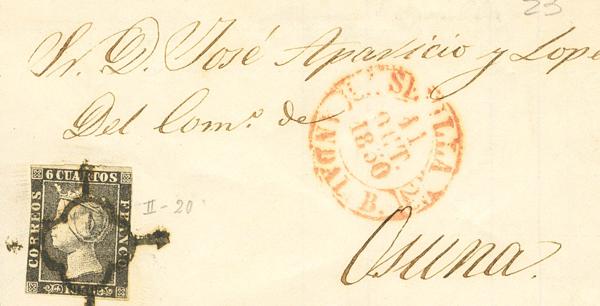 23
Sr. D. José Aparicio y Lope
Del Com.º de
SEVILLA
11
OCT.
1850
ANDAL. B.
6 CUARTOS
CORREOS
FRANCO
II-20
Osuna.